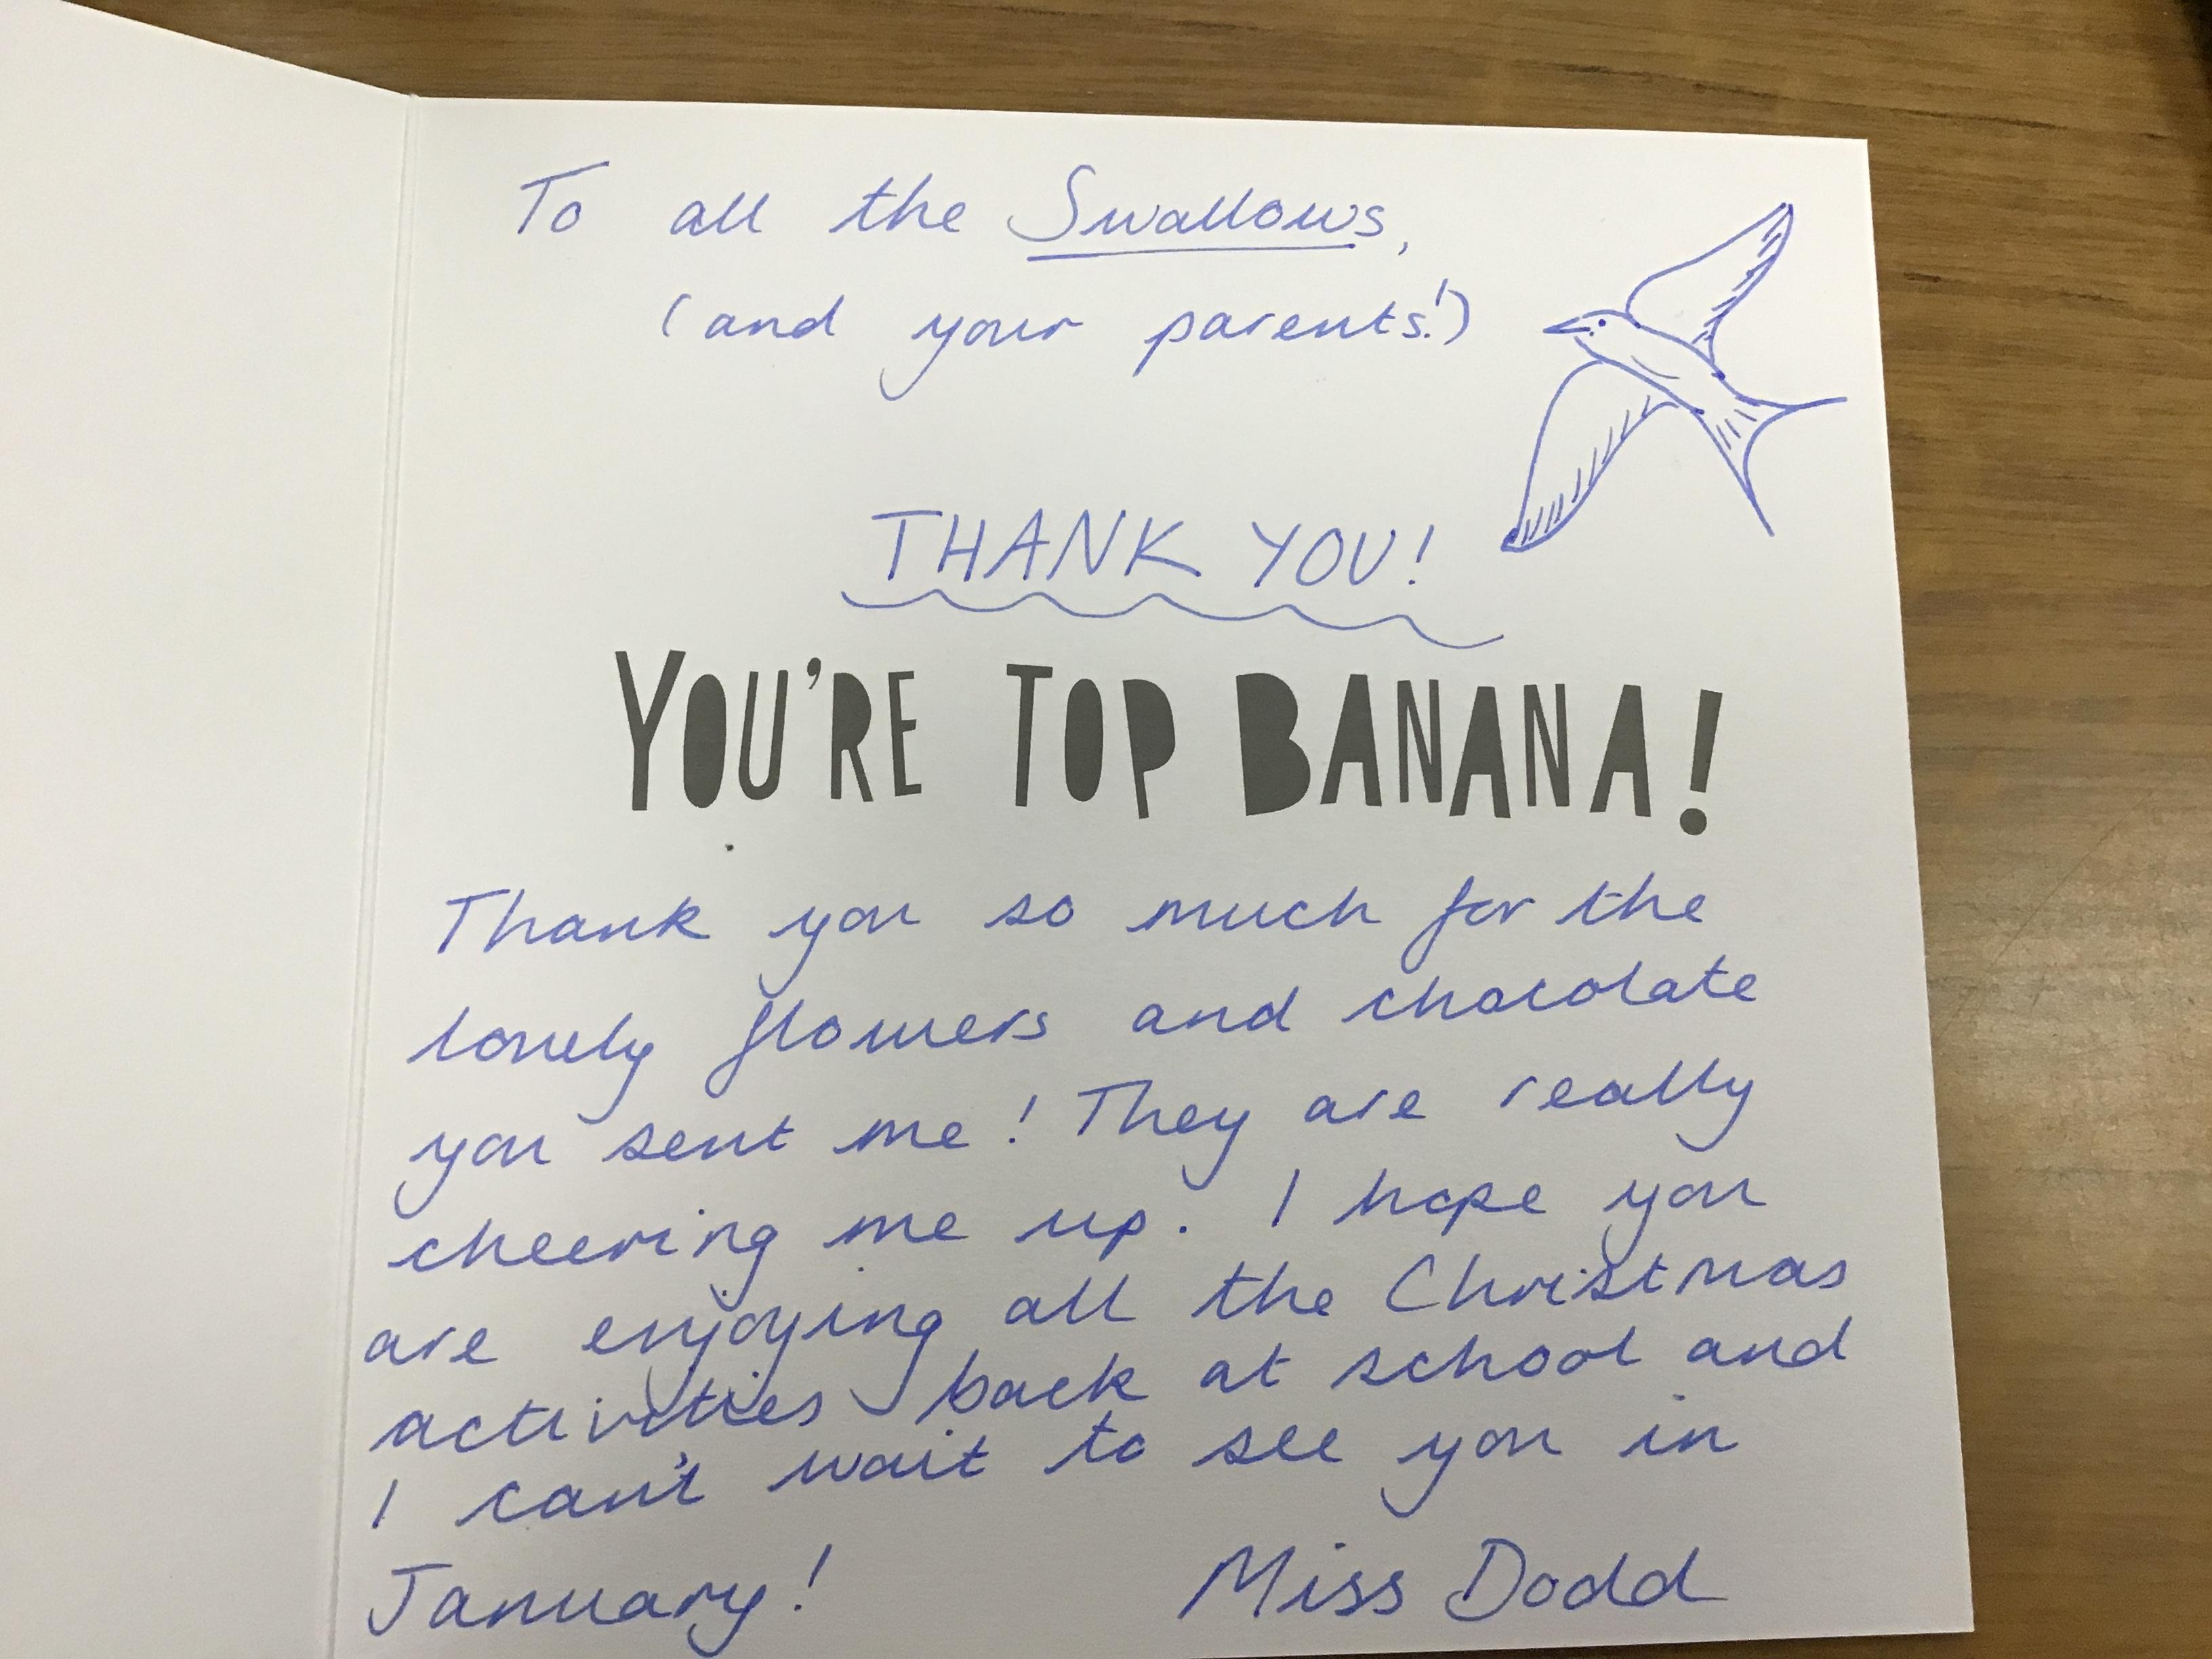 To all the Swallows,
(and your parents!)
THANK YOU!
YOU'RE TOP BANANA!
Thank you so much for the
lovely flowers and chocolate
you sent me! They are really
cheering me up. I hope you
are enjoying all the Christmas
activities back at school and
I can't wait to see you in
January!
Miss Dodd